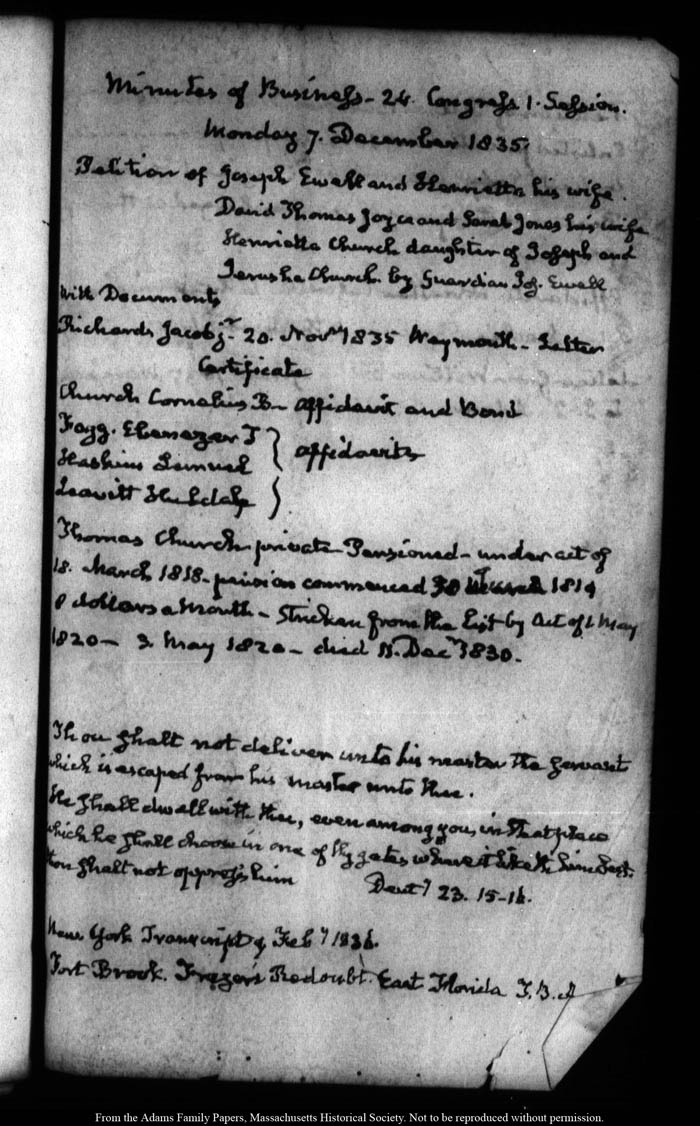 Minutes of Business - 24. Congress 1. Session.
Monday 7. December 1835
Petition of Joseph Ewell and Henrietta his wife.
David Thomas Joyce and Sarah Jones his wife
Henrietta Church daughter of Joseph and
Jerusha Church by Guardian Jos. Ewell
With Documents
Richards Jacob jr. 20. Novr 1835 Weymouth - Letter
Certificate
Church Cornelius B - affidavit and Bond
Fogg. Ebenezer T
Haskins Lemuel } affidavits
Leavitt
Thomas Church private Pensioned - under act of
18. March 1818 - pension commenced 30 March 1819
8 dollars a Month - Stricken from the List by Act of 1 May
1820 - 3. May 1820 - died 11. Decr 1830.
Thou shalt not deliver unto his master the servant
which is escaped from his master unto thee.
He shall dwell with thee, even among you, in that place
which he shall choose in one of thy gates where it liketh him best.
thou shalt not oppress him Deuty 23. 15-16.
New York Transcript 9 Feby 1836.
Fort Brook. Frazer's Redoubt. East Florida
From the Adams Family Papers, Massachusetts Historical Society. Not to be reproduced without permission.